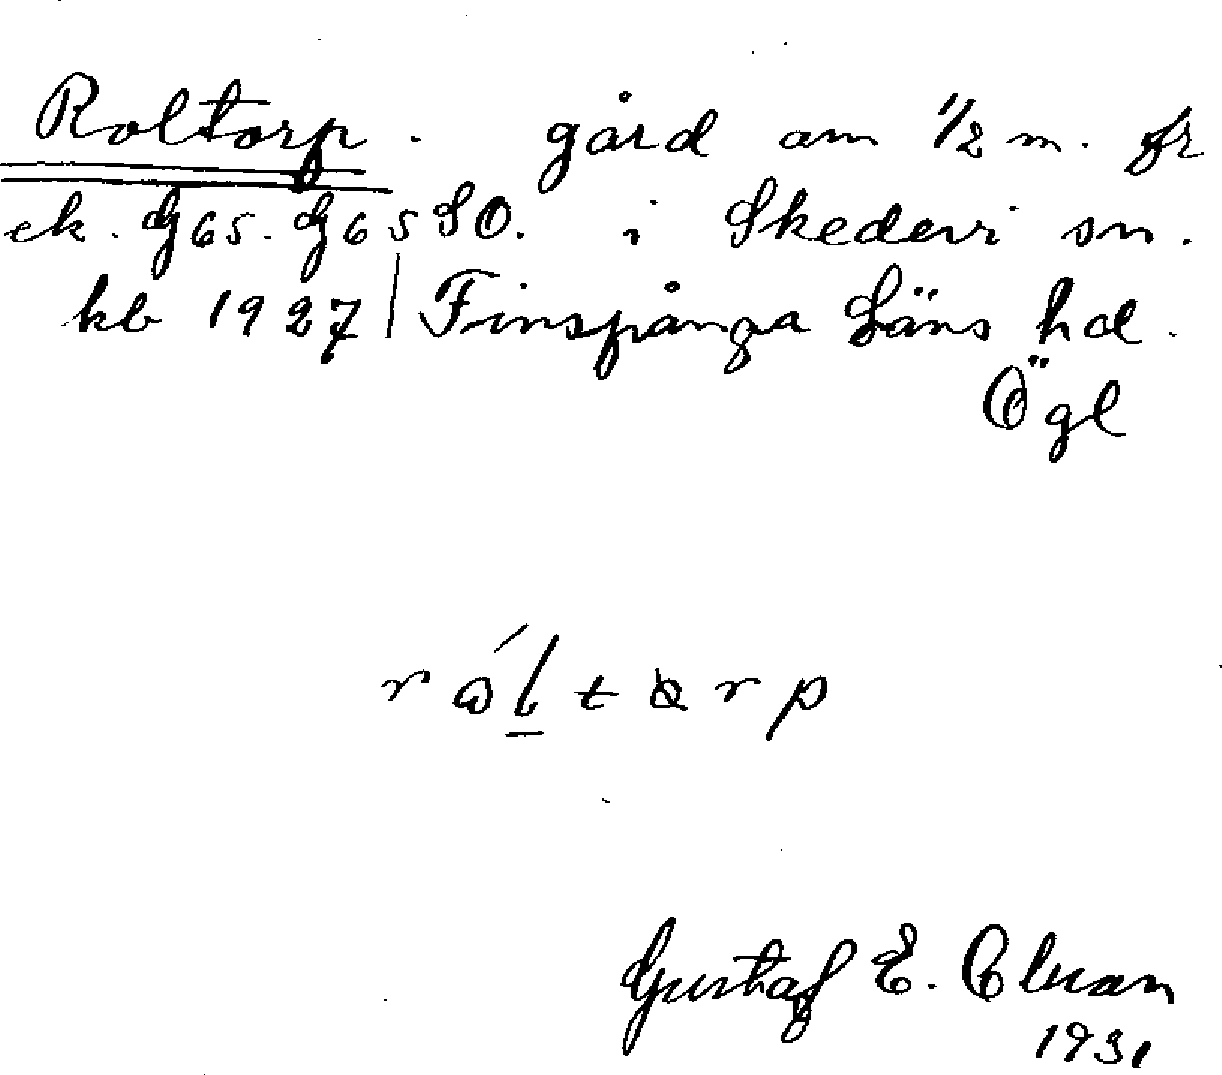 Roltorp. gård om 1/2 m. fr
ek. G65. G65SO. i Skedevi sn.
kb 1927 | Finspånga Läns hd.
Ögl
Gustaf E.
1931